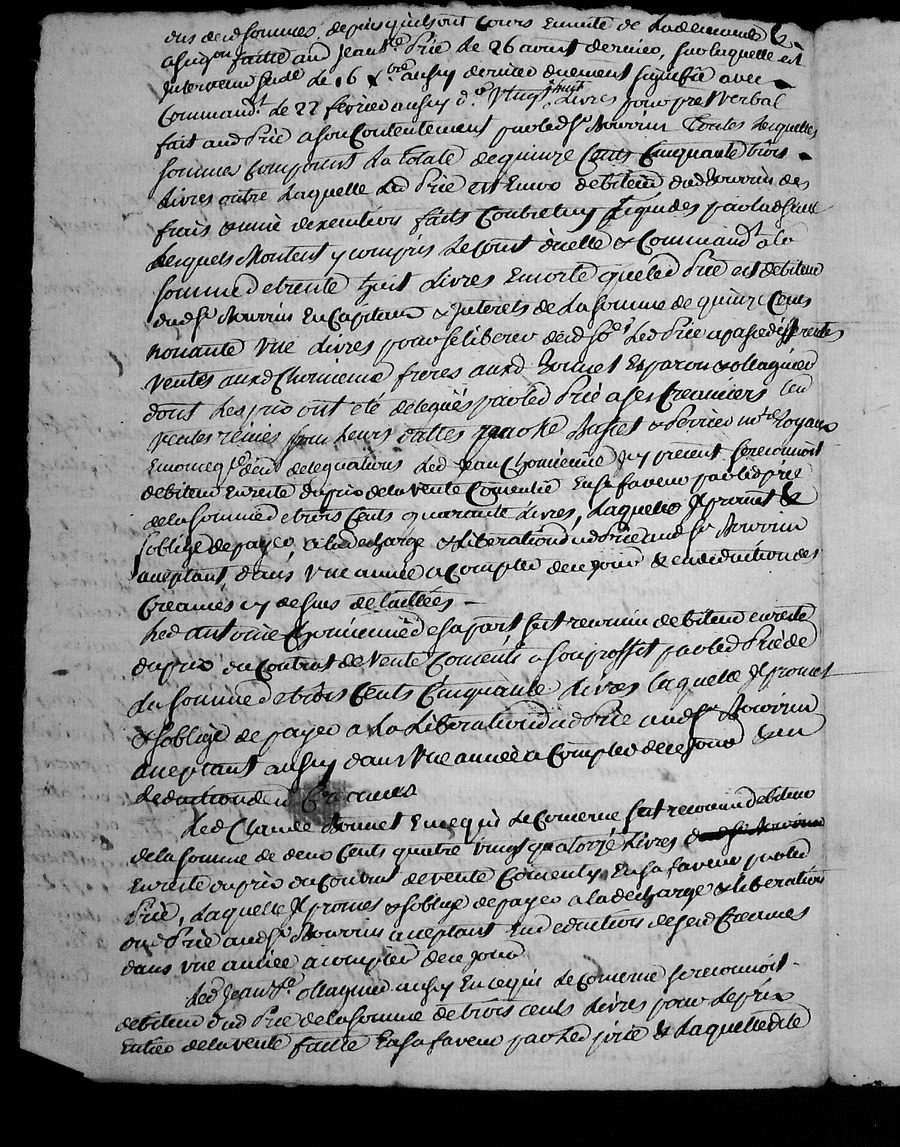 dus desd sommes depuis quils ont Cours en suite de lademande &
assig.on faitte aud Jean B.te Prie le 26 avust dernier, sur laquelle est
Intervenu sude le 16 x.bre aussy dernier duement signifié avec
Command.t le 22 fevrier aussy d.er Vingt huit Livres pour pret Verbal
fait aud Prie a son Contentement par led S.r Rouvrin toutes lesquelles
somme Composent La totale de quinze Cents Cinquante trois
Livres outre Laquelle Led Prie est Encore debiteur dud Rouvrin des
frais & mise dexecution faits Contre luy Liquides par lad sude
Lesquels Montent y compris Le Cout dicelle & Command.t a la
somme de trente huit Livres En sorte que led Prie est debiteur
dud S.r Rouvrin En Capitaux & Interets de La somme de quinze Cents
nonante Vne Livres pour se liberer desd so.es Led Prie a passé differentes
ventes auxd Chomienne freres aud Bonnet Esparon & ollagnier
dont Les prix ont été delegués par led Prie a ses Creanciers Les
ventes reçues pour Leurs dattes par M.e Bastet & Perrier no.res Royaux
En conceq.ce desd delegations Led Jean Chomienne icy present se reconnoit
debiteur En reste du prix de la vente Consentie En sa faveur par led prie
de la somme de trois Cents quarante Livres, Laquelle Il promet &
soblige de payer, a la decharge & Liberation dud Prie aud S.r Rouvrin
aceptant, dans Vne année a Compter de ce jour & en deduction des
Creances cy dessus detaillées —
Led antoine Chomienne de sa part sest reconnu debiteur en reste
du prix du Contrat de Vente Consenti a son proffit par led Prie de
La somme de trois Cents Cinquante Livres laquelle Il promet
& soblige de payer a La Liberation dud Prie aud S.r Rouvrin
aceptant aussy dans Vne année a Compter de ce jour & en
deduction desd Creances
Led Claude Bonnet En ce qui Le Conserne sest reconnu debiteur
de la somme de deux Cents quatre vingt quatorze Livres
En reste du prix du Contrat de vente Consenty En sa faveur par led
Prie, Laquelle Il promet & soblige de payer a la decharge & liberation
dud Prie aud S.r Rouvrin aceptant En deduction de sesd Creances
dans Vne année a compter de ce jour
Led Jean B.te ollagnier aussy En ce qui Le Conserne se reconnoit
debiteur dud Prie de la somme de trois cents Livres pour Le prix
Entier de la vente faitte En sa faveur par led prie & Laquelle dite